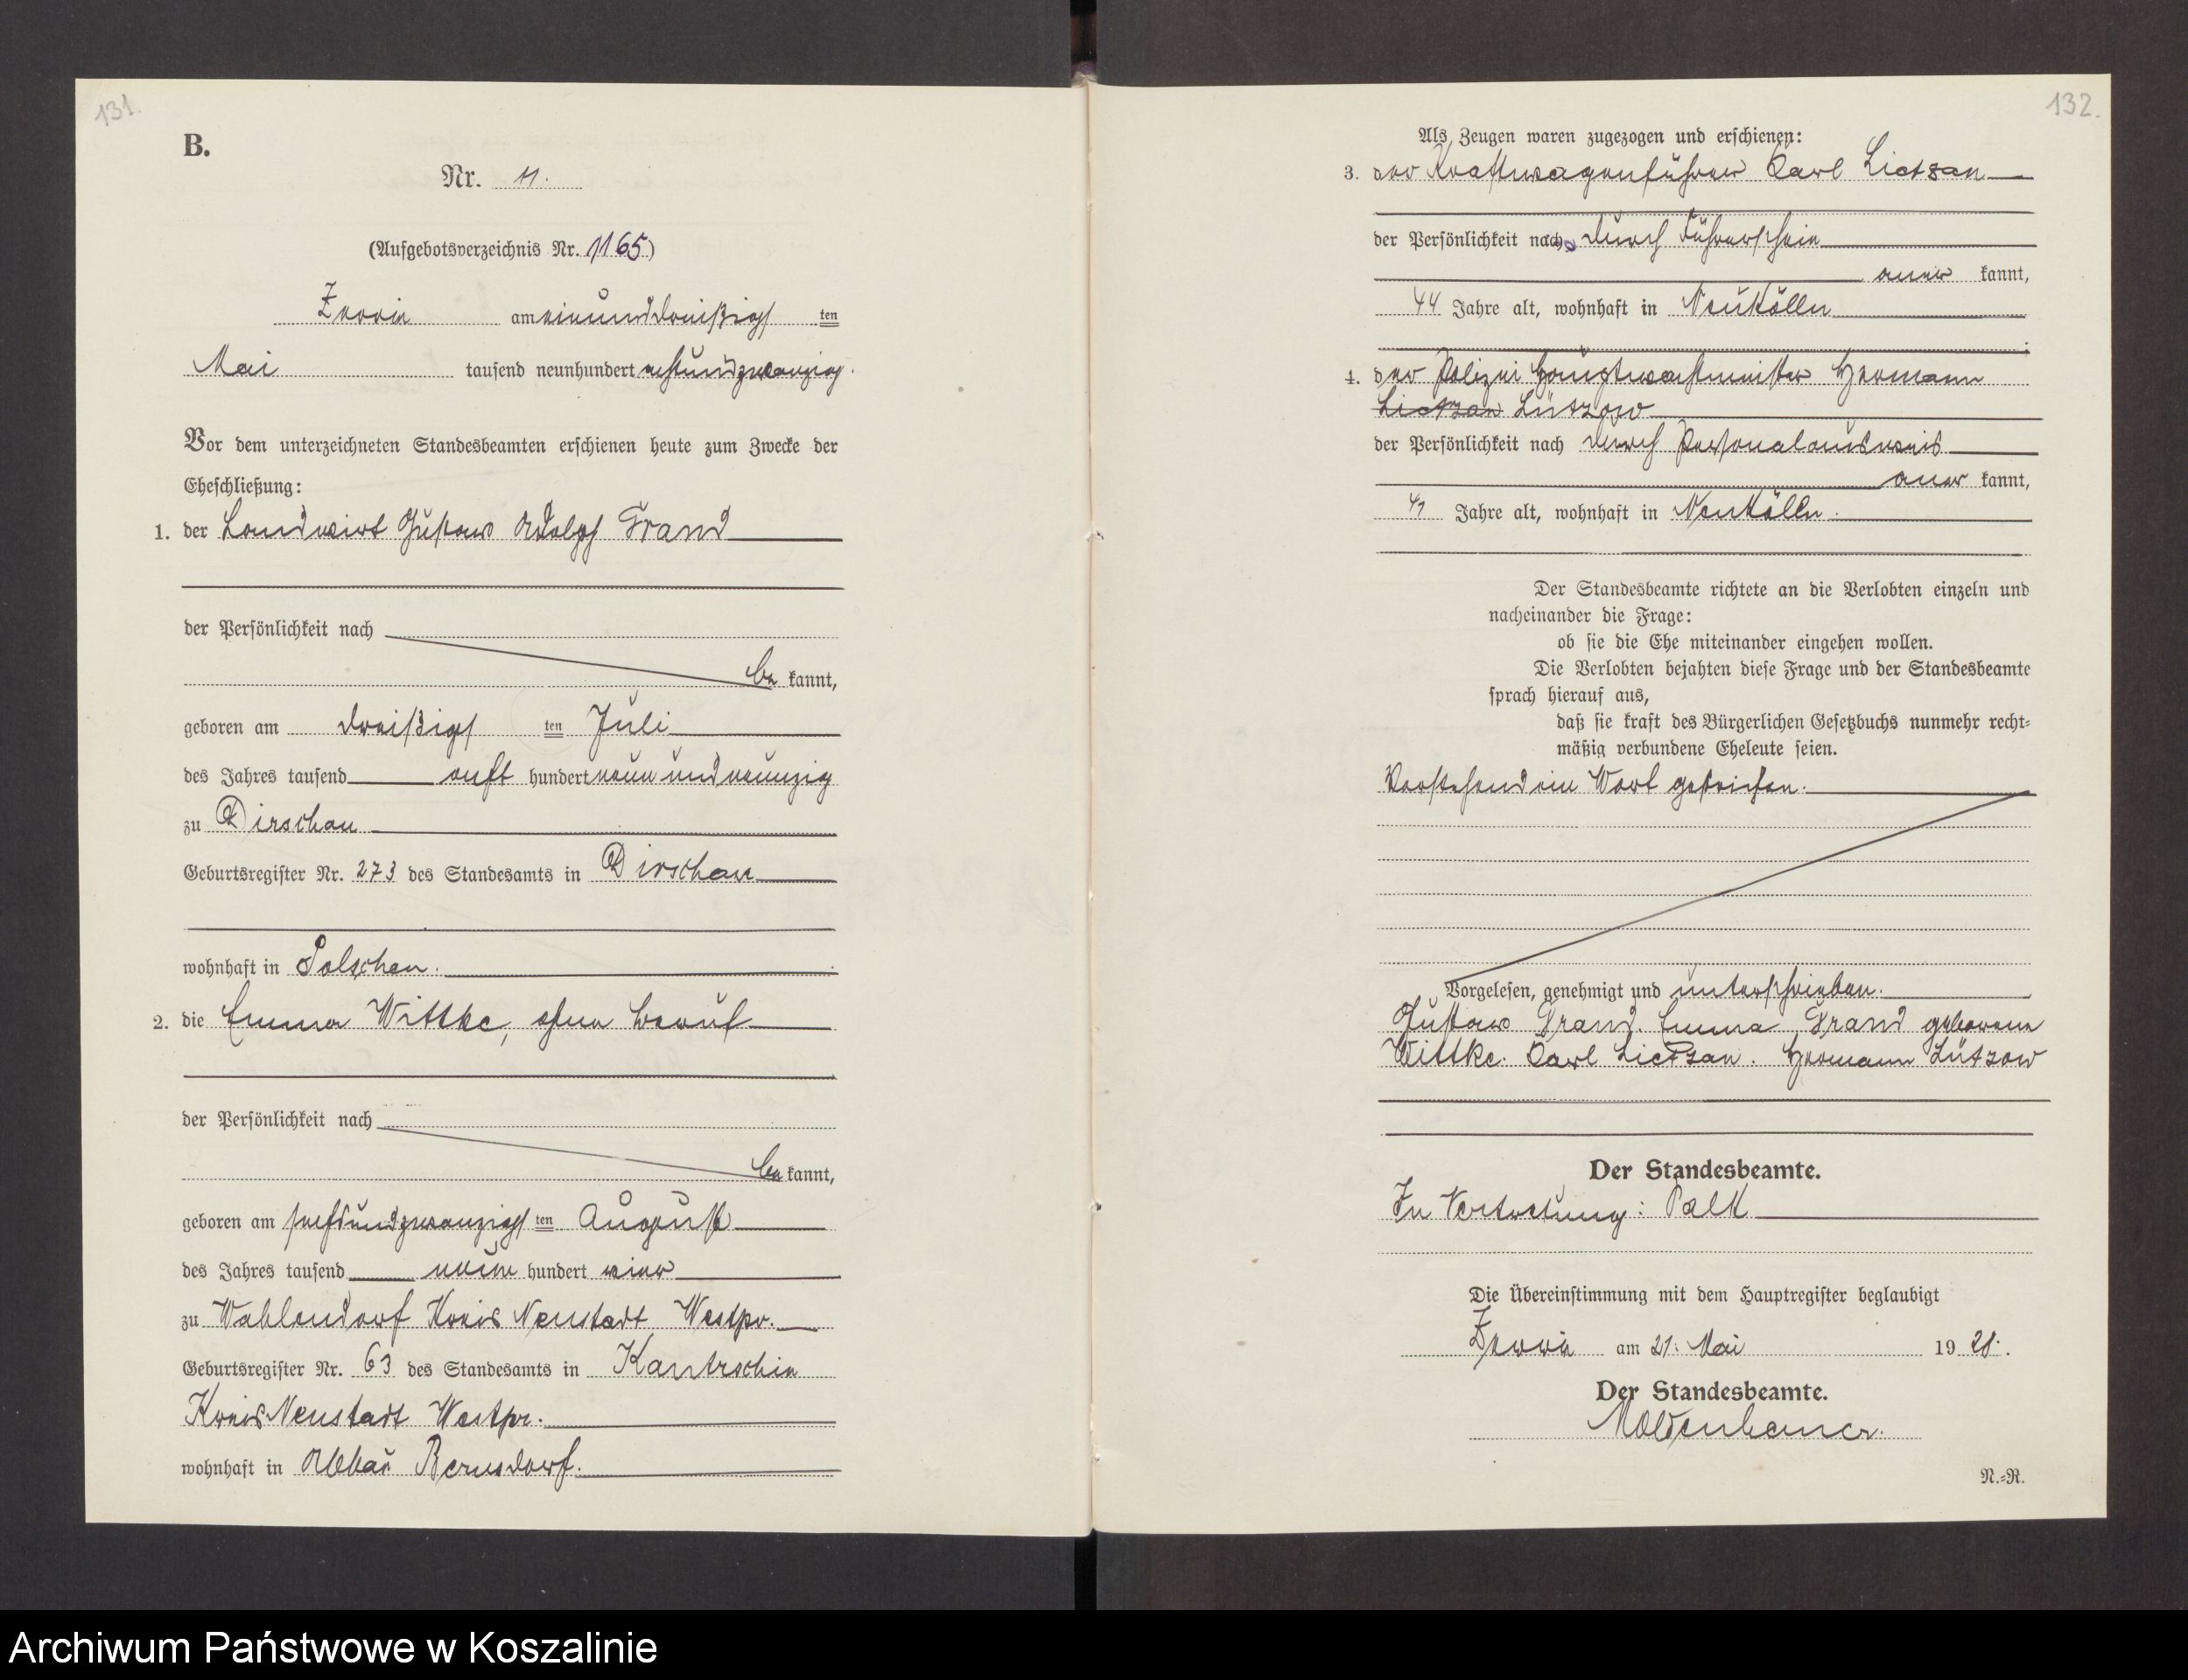 131.
B.
Nr. 11.
(Aufgebotsverzeichnis Nr. 1165)
Zerrin am einunddreißigs ten
Mai tausend neunhundert achtundzwanzig.
Vor dem unterzeichneten Standesbeamten erschienen heute zum Zwecke der
Eheschließung:
1. der Landwirt Gustav Adolph Brand
der Persönlichkeit nach
be kannt,
geboren am dreißigs ten Juli
des Jahres tausend acht hundert neun und neunzig
zu Dirschau
Geburtsregister Nr. 273 des Standesamts in Dirschau
wohnhaft in Polschen.
2. die Emma Wittke, ohne Beruf
der Persönlichkeit nach
be kannt,
geboren am sechsundzwanzigs ten August
des Jahres tausend neun hundert vier
zu Wahlendorf Kreis Neustadt Westpr.
Geburtsregister Nr. 63 des Standesamts in Kantrschin
Kreis Neustadt Westpr.
wohnhaft in Abbau Bernsdorf.
132.
Als Zeugen waren zugezogen und erschienen:
3. der Kraftwagenführer Karl Lietzan
der Persönlichkeit nach durch Führerschein
aner kannt,
44 Jahre alt, wohnhaft in Neukölln
4. der Polizei Hauptwachtmeister Hermann
Lietzan Lützow
der Persönlichkeit nach durch Personalausweis
aner kannt,
41 Jahre alt, wohnhaft in Neukölln.
Der Standesbeamte richtete an die Verlobten einzeln und
nacheinander die Frage:
ob sie die Ehe miteinander eingehen wollen.
Die Verlobten bejahten diese Frage und der Standesbeamte
sprach hierauf aus,
daß sie kraft des Bürgerlichen Gesetzbuchs nunmehr recht-
mäßig verbundene Eheleute seien.
Vorstehend ein Wort gestrichen.
Vorgelesen, genehmigt und unterschrieben.
Gustav Brand. Emma Brand geborene
Wittke. Karl Lietzan. Hermann Lützow
Der Standesbeamte.
In Vertretung: Palk
Die Übereinstimmung mit dem Hauptregister beglaubigt
Zerrin am 31. Mai 19 28.
Der Standesbeamte.
Moldenhauer.
N.=R.
Archiwum Państwowe w Koszalinie